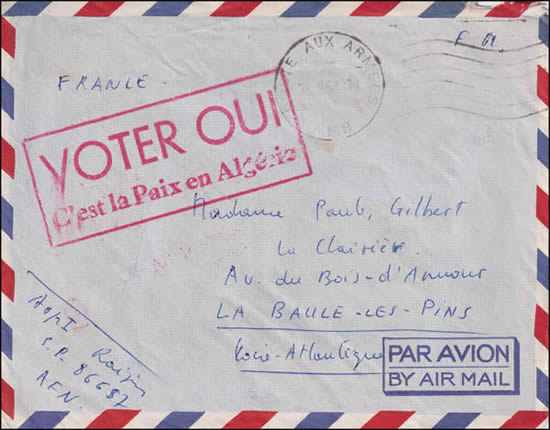 FRANCE
F.M.
POSTE AUX ARMÉES
AFN
VOTER OUI
C'est la Paix en Algérie
Madame Paul, Gilbert
La Clairière
Av. du Bois-d'Amour
LA BAULE-LES-PINS
Loire-Atlantique
PAR AVION
BY AIR MAIL
S.P. 86687
AFN.